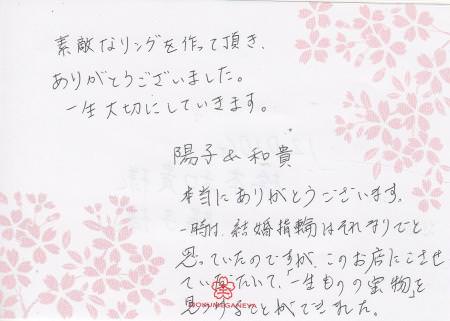 素敵なリングを作って頂き、
ありがとうございました。
一生大切にしていきます。
陽子&和貴
本当にありがとうございます。
一時は、結婚指輪はそれなりでと
思っていたのですが、このお店にこさせ
ていただいて、「一生ものの宝物」を
見つけることができました。
MOKUMEGANEYA